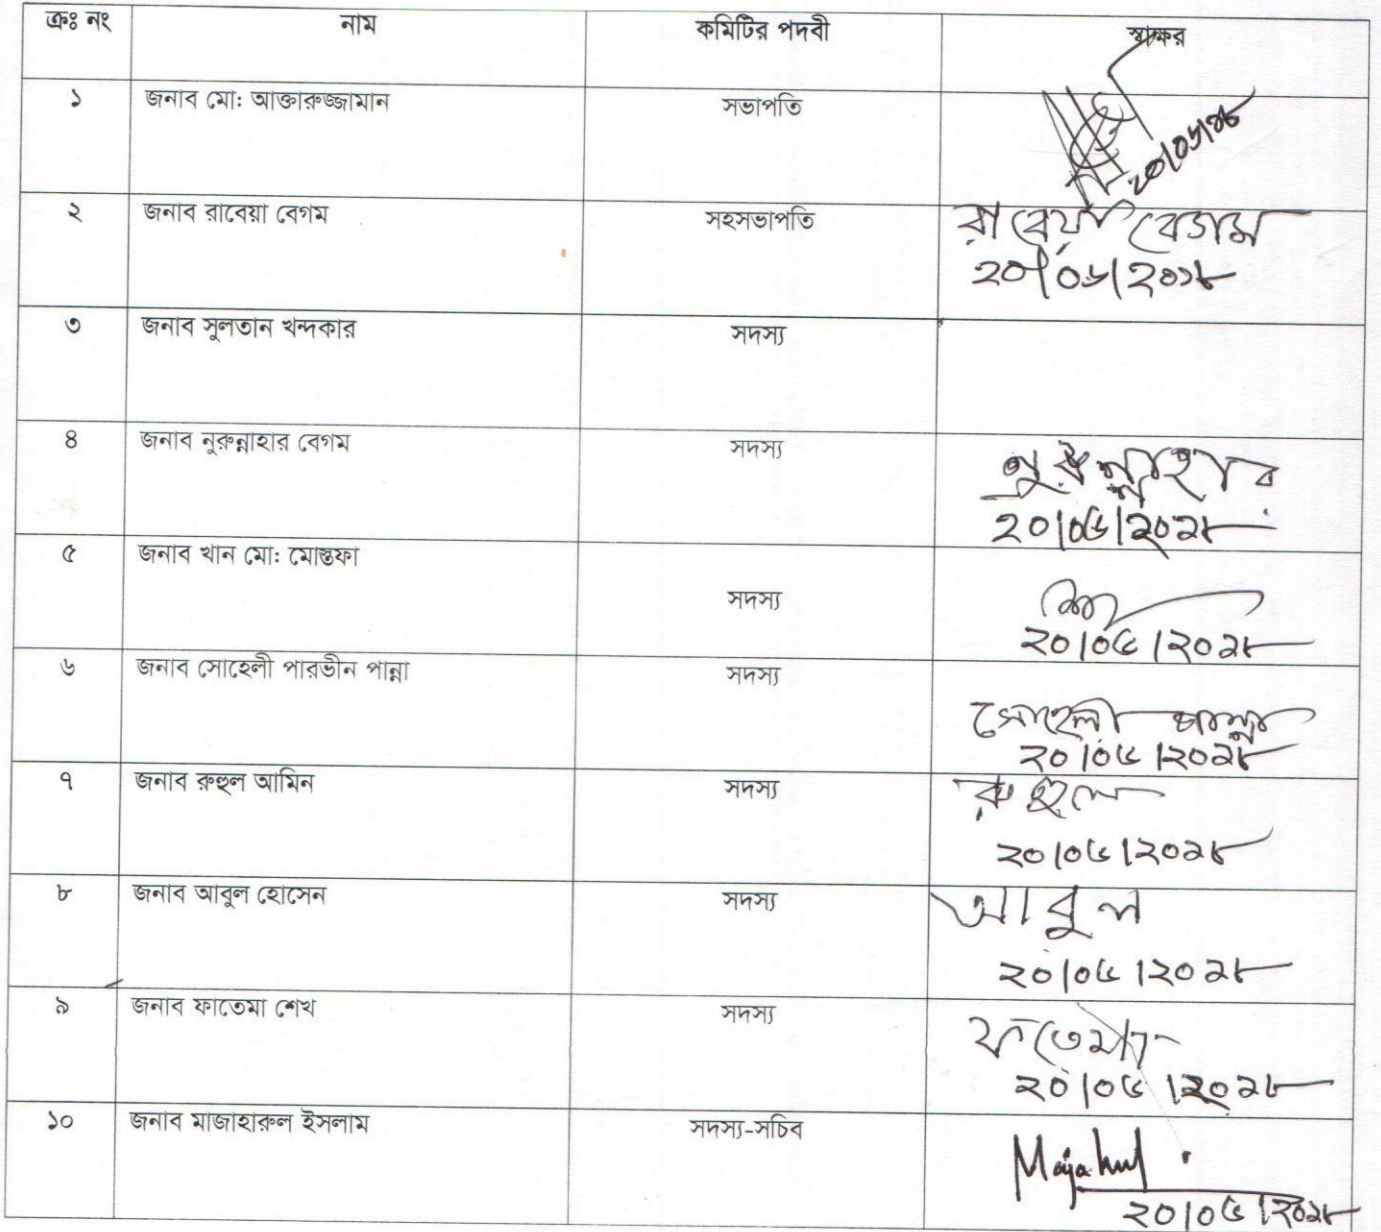 ক্রঃ নং নাম কমিটির পদবী স্বাক্ষর
১ জনাব মো: আক্তারুজ্জামান সভাপতি
২ জনাব রাবেয়া বেগম সহসভাপতি রাবেয়া বেগম
২০/০৬/২০১৮
৩ জনাব সুলতান খন্দকার সদস্য
৪ জনাব নুরুন্নাহার বেগম সদস্য নুরুন্নাহার
২০/০৬/২০১৮
৫ জনাব খান মো: মোস্তফা
সদস্য
২০/০৬/২০১৮
৬ জনাব সোহেলী পারভীন পান্না সদস্য সোহেলী পান্না
২০/০৬/২০১৮
৭ জনাব রুহুল আমিন সদস্য রুহুল
২০/০৬/২০১৮
৮ জনাব আবুল হোসেন সদস্য আবুল
২০/০৬/২০১৮
৯ জনাব ফাতেমা শেখ সদস্য ফাতেমা
২০/০৬/২০১৮
১০ জনাব মাজাহারুল ইসলাম সদস্য-সচিব
২০/০৬/২০১৮